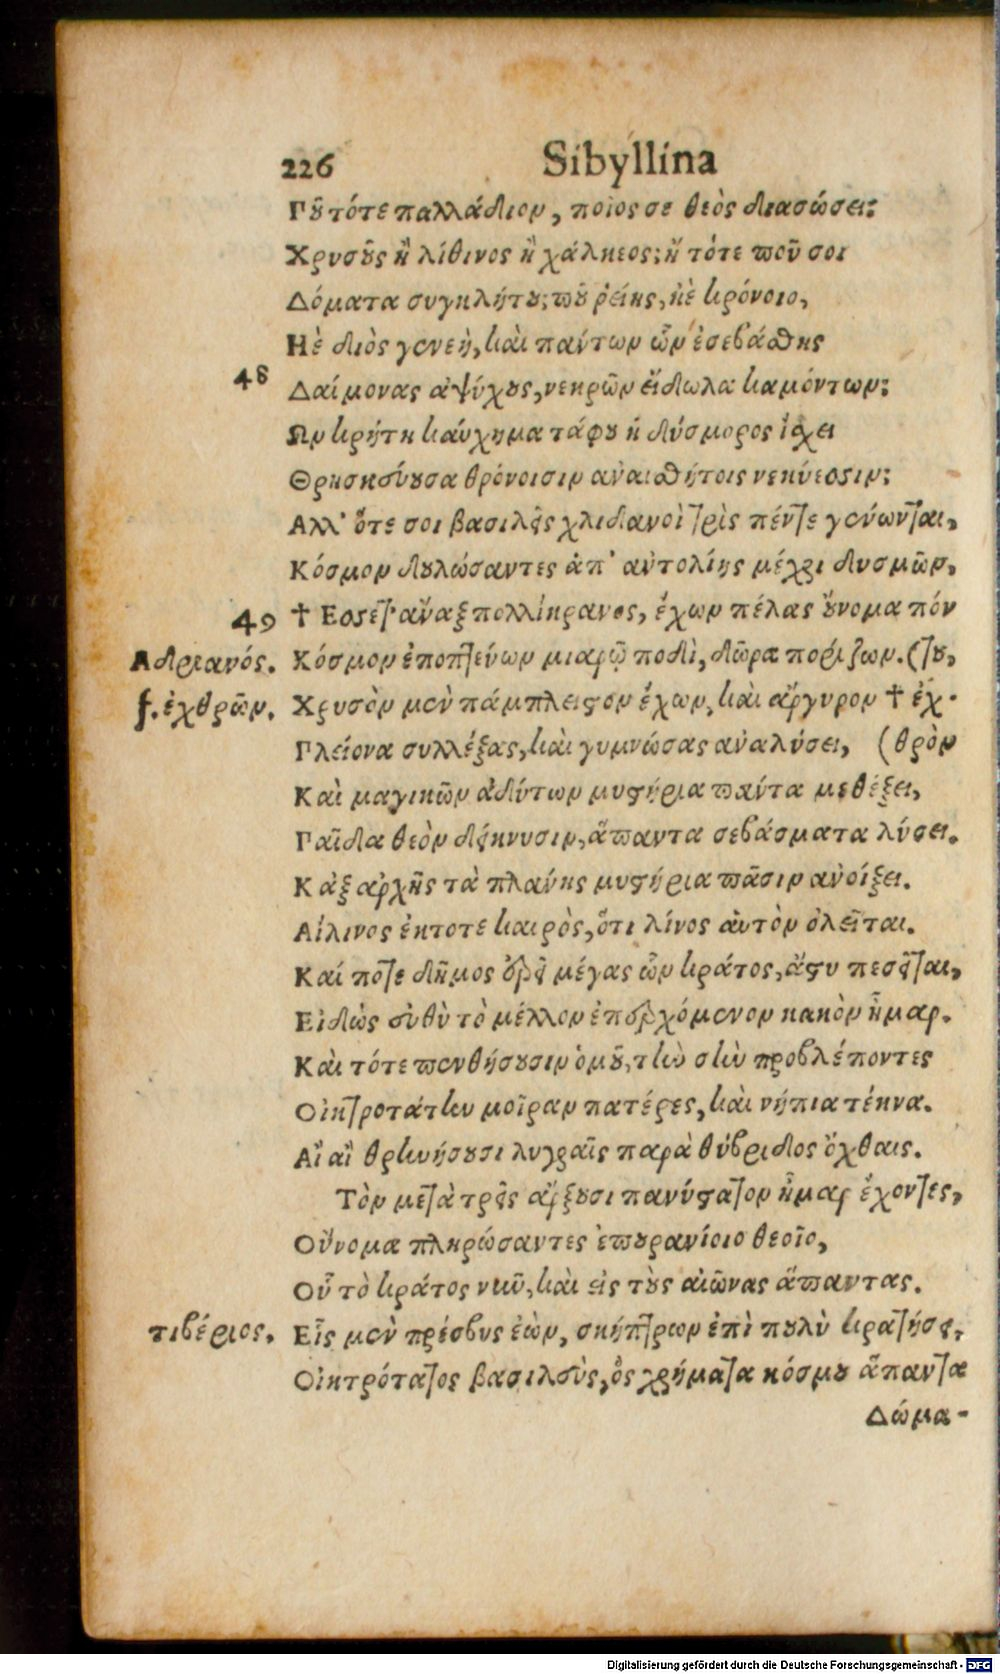 226 Sibyllina
Ποῦ τότε παλλάδιον, ποῖος σε θεὸς διασώσει;
Χρυσοῦς ἢ λίθινος ἢ χάλκεος; ἢ τότε ποῦ σοι
Δόματα συγκλήτου; ποῦ ῥείης, ἠὲ κρόνοιο,
Ηὲ διὸς γενεὴ, καὶ πάντων ὧν ἐσεβάσθης
48
Δαίμονας ἀψύχους, νεκρῶν εἴδωλα καμόντων;
Ων κρήτη καύχημα τάφου ἡ δύσμορος ἴσχει
Θρησκεύουσα θρόνοισιν ἀναισθήτοις νεκύεσσιν;
Αλλ' ὅτε σοι βασιλεῖς χλιδανοὶ τρὶς πέντε γενώνται,
Κόσμον δουλώσαντες ἀπ' αὐτολίης μέχρι δυσμῶν,
49 † Εσσετ' ἄναξ πολλίκρανος, ἔχων πέλας οὔνομα πόν
Αδριανός. Κόσμον ἐποπτεύων μιαρῷ ποδὶ, δῶρα πορίζων. (του,
f. ἐχθρῶν. Χρυσὸν μὲν πάμπλειστον ἔχων, καὶ ἄργυρον † ἐχ-
Πλείονα συλλέξας, καὶ γυμνώσας ἀναλύσει, (θρὸν
Καὶ μαγικῶν ἀδύτων μυστήρια πάντα μεθέξει,
Παῖδα θεὸν δείκνυσιν, ἅπαντα σεβάσματα λύσει.
Κἀξ ἀρχῆς τὰ πλάνης μυστήρια πᾶσιν ἀνοίξει.
Αἴλινος ἔκτοτε καιρὸς, ὅτι λίνος αὐτὸν ὀλεῖται.
Καί ποτε δῆμος ἐρεῖ μέγας ὢν κράτος, ἄστυ πεσεῖται,
Εἰδὼς εὐθὺ τὸ μέλλον ἐπερχόμενον κακὸν ἦμαρ.
Καὶ τότε πενθήσουσιν ὁμοῦ, τὴν σὴν προβλέποντες
Οἰκτροτάτην μοῖραν πατέρες, καὶ νήπια τέκνα.
Αἲ αἲ θρηνήσουσι λυγραῖς παρὰ θύβριδος ὄχθαις.
Τὸν μετὰ τρεῖς ἄρξουσι πανύστατον ἦμαρ ἔχοντες,
Οὔνομα πληρώσαντες ἐπουρανίοιο θεοῖο,
Οὗ τὸ κράτος νῦν, καὶ εἰς τοὺς αἰῶνας ἅπαντας.
τιβέριος. Εἷς μὲν πρέσβυς ἐὼν, σκήπτρων ἐπὶ πουλὺ κρατήσει,
Οἰκτρότατος βασιλεὺς, ὃς χρήματα κόσμου ἅπαντα
Δώμα-
Digitalisierung gefördert durch die Deutsche Forschungsgemeinschaft - DFG